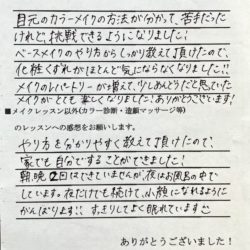 目元のカラーメイクの方法が分かって、苦手だった
けれど、挑戦できるようになりました！
ベースメイクのやり方からしっかり教えて頂けたので、
化粧くずれがほとんど気にならなくなりました!!
メイクのレパートリーが増えて、少しあんうだと思っていた
メイクがとても楽しくなりました！ありがとうございます！
■メイクレッスン以外(カラー診断・造顔マッサージ等)
のレッスンへの感想をお願いします。
やり方を分かりやすく教えて頂けたので、
家でも自分ですることができました！
朝、晩2回はできていませんが、夜はお風呂の中で
しています。夜だけでも続けて、小顔になれるように
がんばります!! すっきりしてよく眠れています☺
ありがとうございました！